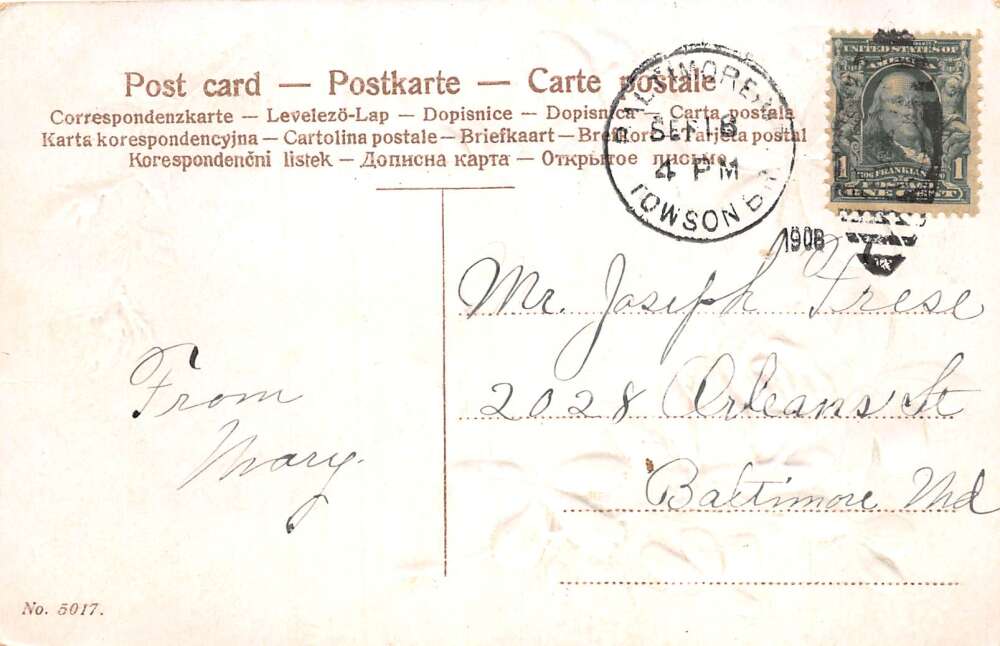 Post card — Postkarte — Carte postale
Correspondenzkarte — Levelezö-Lap — Dopisnice — Dopisnica — Carta postale
Karta korespondencyjna — Cartolina postale — Briefkaart — Brefkort — Tarjeta postal
Korespondenční listek — Дописна карта — Открытое письмо
BALTIMORE, MD.
SEP 18
4 PM
TOWSON
1908
UNITED STATES OF
AMERICA
1 1
FRANKLIN
POSTAGE
ONE CENT
Mr. Joseph Frese
2028 Orleans St
Baltimore Md
From
Mary.
No. 5017.